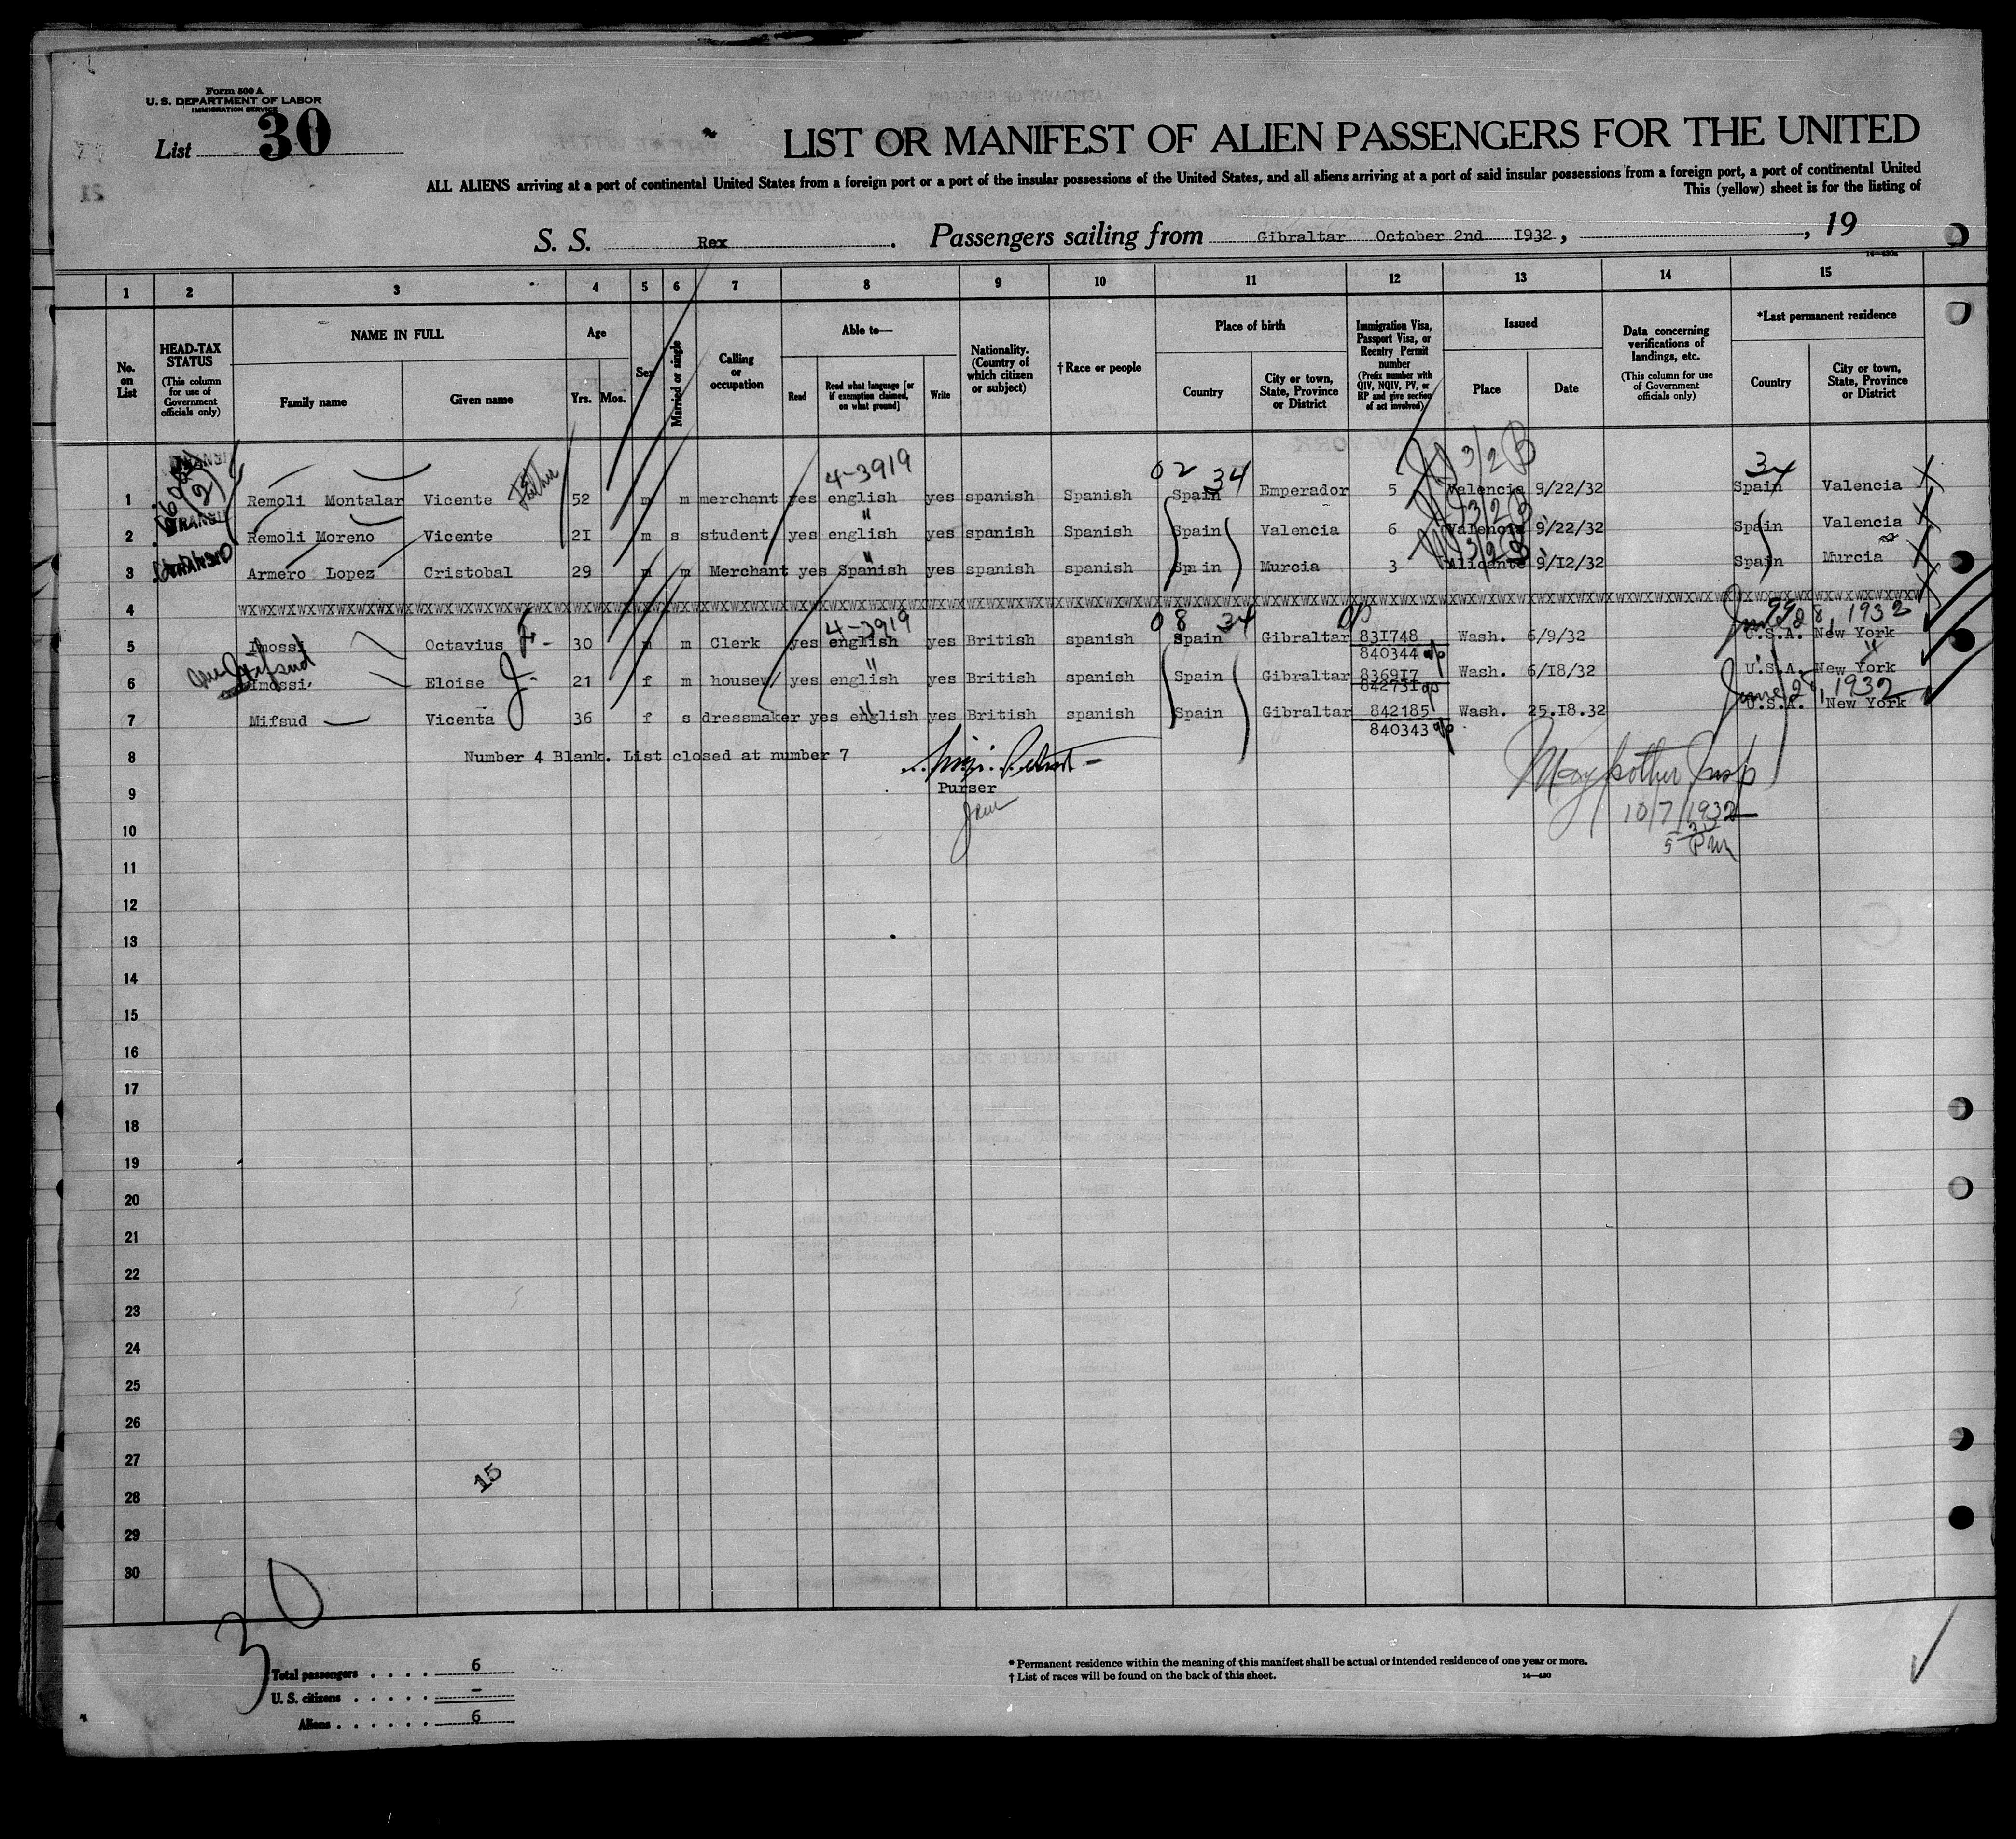 Form 500 A
U. S. DEPARTMENT OF LABOR
IMMIGRATION SERVICE
List 30
LIST OR MANIFEST OF ALIEN PASSENGERS FOR THE UNITED
ALL ALIENS arriving at a port of continental United States from a foreign port or a port of the insular possessions of the United States, and all aliens arriving at a port of said insular possessions from a foreign port, a port of continental United
This (yellow) sheet is for the listing of
S. S. Rex. Passengers sailing from Gibraltar October 2nd 1932, , 19
1 2 3 4 5 6 7 8 9 10 11 12 13 14 15
No. on List
HEAD-TAX STATUS (This column for use of Government officials only)
NAME IN FULL
Family name
Given name
Age
Yrs. Mos.
Sex
Married or single
Calling or occupation
Able to—
Read
Read what language [or if exemption claimed, on what ground]
Write
Nationality. (Country of which citizen or subject)
†Race or people
Place of birth
Country
City or town, State, Province or District
Immigration Visa, Passport Visa, or Reentry Permit number (Prefix number with QIV, NQIV, PV, or RP and give section of act involved)
Issued
Place
Date
Data concerning verifications of landings, etc. (This column for use of Government officials only)
*Last permanent residence
Country
City or town, State, Province or District
3/2 B
4-3919 02 34 34
1 Remoli Montalar Vicente 52 m m merchant yes english yes spanish Spanish Spain Emperador 5 Valencia 9/22/32 Spain Valencia
3/2 B
2 Remoli Moreno Vicente 21 m s student yes english " yes spanish Spanish Spain Valencia 6 Valencia 9/22/32 Spain Valencia
3/2 B
3 Armero Lopez Cristobal 29 m m Merchant yes Spanish " yes spanish spanish Spain Murcia 3 Alicante 9/12/32 Spain Murcia
4
4-3919 08 34 June 28, 1932
5 Imossi Octavius F. 30 m m Clerk yes english yes British spanish Spain Gibraltar 831748 Wash. 6/9/32 U.S.A. New York
840344
6 Imossi. Eloise J. 21 f m housew yes english " yes British spanish Spain Gibraltar 836917 Wash. 6/18/32 U.S.A. New York
842731 June 28, 1932
7 Mifsud Vicenta 36 f s dressmaker yes english " yes British spanish Spain Gibraltar 842185 Wash. 25.18.32 U.S.A. New York
840343
8 Number 4 Blank. List closed at number 7
9 Purser
10 10/7/1932
11
12
13
14
15
16
17
18
19
20
21
22
23
24
25
26
27
15
28
29
30
30
Total passengers . . . . 6
U. S. citizens . . . . . –
Aliens . . . . . . 6
* Permanent residence within the meaning of this manifest shall be actual or intended residence of one year or more.
† List of races will be found on the back of this sheet. 14—430